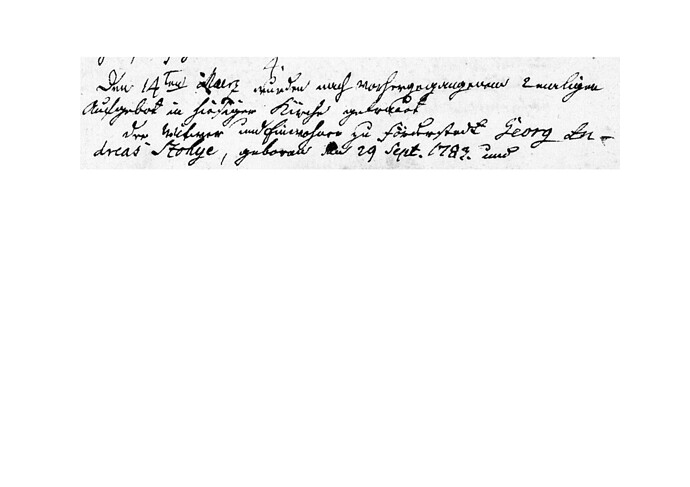 Den 14ten Maerz wurden nach vorhergegangenem 2maligen
Aufgebot in hiesiger Kirche getrauet
der Witwer und Einwohner zu Förderstedt Georg An-
dreas Stohye, geboren den 29 Sept. 1783. und